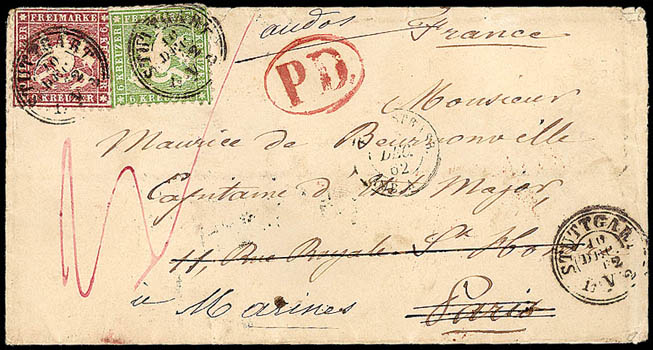 FREIMARKE
KREUZER
6 KREUZER
6 KREUZER
STUTTGART
10
DEC
STUTTGART
10
DEC
France
P.D.
Monsieur
Maurice de Bournonville
DEC.
62
Capitaine d'Etat Major,
11, Rue Royale St Hon
à Marines Paris
STUTTGART
10
DEC